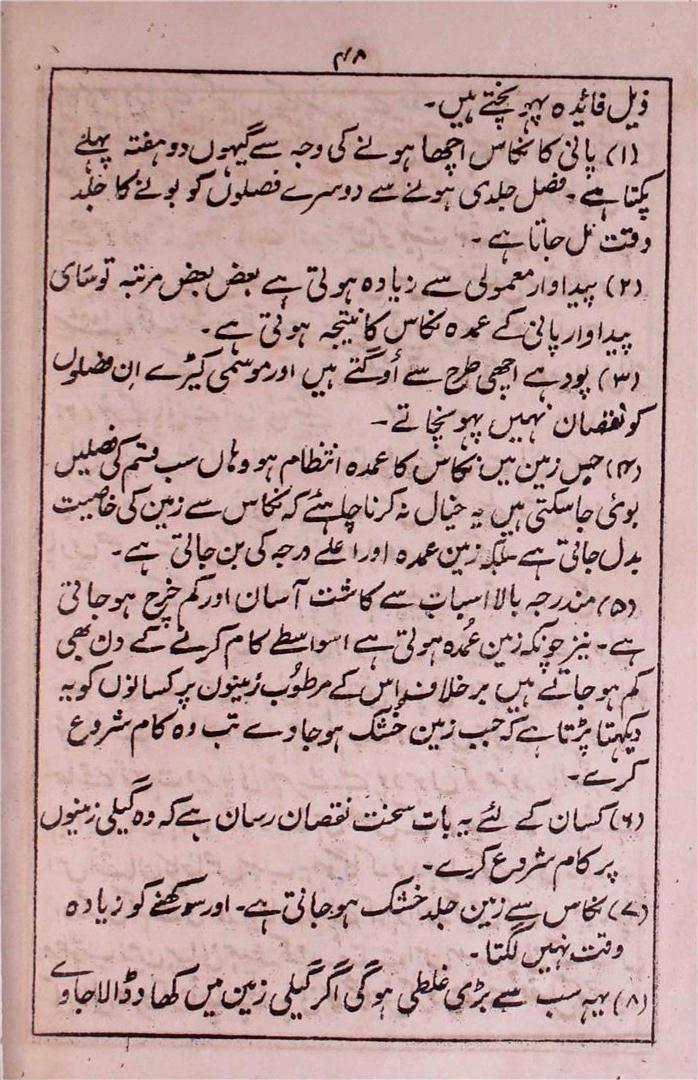 ۴۸
ذیل فائدہ پہونچتے ہیں۔
(۱) پانی کا نکاس اچھا ہونے کی وجہ سے گیہوں دو ہفتہ پہلے
پکتا ہے۔ فصل جلدی ہونے سے دوسرے فصلوں کو بونے کا جلد
وقت مل جاتا ہے۔
(۲) پیداوار معمولی سے زیادہ ہوتی ہے بعض بعض مرتبہ تو ساری
پیداوار پانی کے عمدہ نکاس کا نتیجہ ہوتی ہے۔
(۳) پودہے اچھی طرح سے اُوگتے ہیں اور موسمی کیڑے اِن فصلوں
کو نقصان نہیں پہونچاتے۔
(۴) جس زمین میں نکاس کا عمدہ انتظام ہو وہاں سب قسم کی فصلیں
بوئی جا سکتی ہیں یہ خیال نہ کرنا چاہئے کہ نکاس سے زمین کی خاصیت
بدل جاتی ہے بلکہ زمین عمدہ اور اعلےٰ درجہ کی بن جاتی ہے۔
(۵) مندرجہ بالا اسباب سے کاشت آسان اور کم خرچ ہو جاتی
ہے۔ نیز چونکہ زمین عُمدہ ہوتی ہے اسواسطے کام کرنے کے دن بھی
کم ہو جاتے ہیں برخلاف اِس کے مرطُوب زمینوں پر کسانوں کو یہ
دیکہنا پڑتا ہے کہ جب زمین خُشک ہو جاوے تب وہ کام شروع
کرے۔
(۶) کسان کے لئے یہ بات سخت نقصان رسان ہے کہ وہ گیلی زمینوں
پر کام شروع کرے۔
(۷) نکاس سے زمین جلد خشک ہو جاتی ہے۔ اور سوکھنے کو زیادہ
وقت نہیں لگتا۔
(۸) یہہ سب سے بڑی غلطی ہوگی اگر گیلی زمین میں کھاد ڈالا جاوے